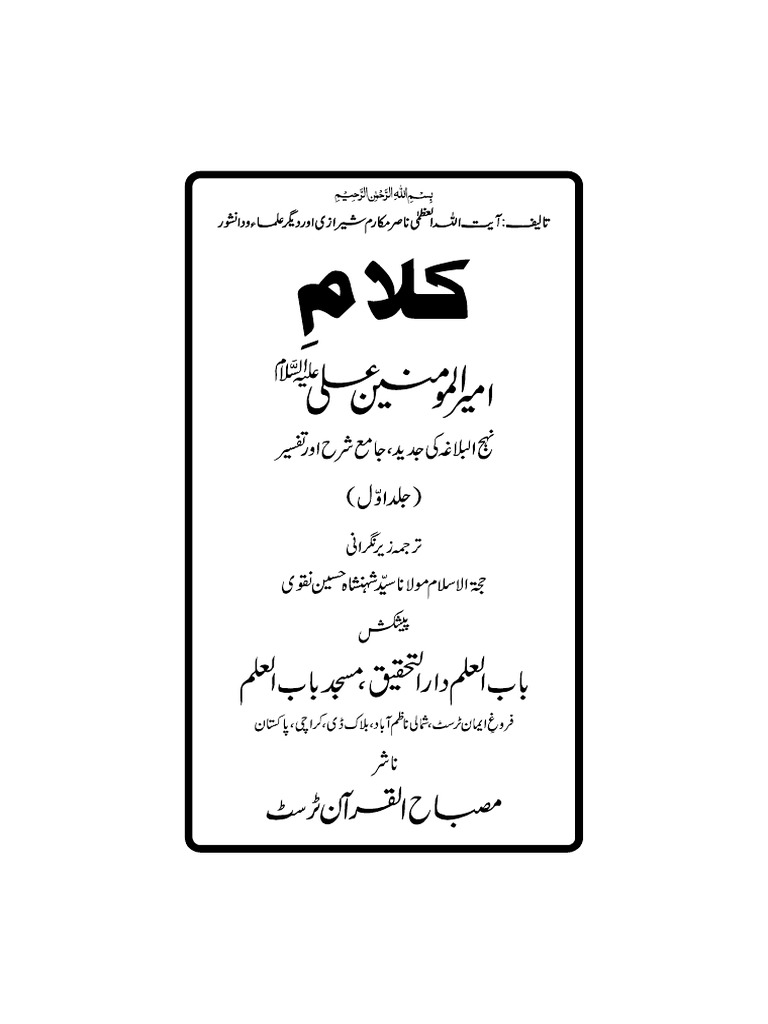 بِسْمِ اللهِ الرَّحْمٰنِ الرَّحِيْمِ
تالیف: آیت اللہ العظمیٰ ناصر مکارم شیرازی اور دیگر علماء و دانشور
کلامِ
امیر المومنین علی علیہ السَّلام
نہج البلاغہ کی جدید، جامع شرح اور تفسیر
(جلد اوّل)
ترجمہ زیر نگرانی
حجۃ الاسلام مولانا سیّد شہنشاہ حسین نقوی
پیشکش
باب العلم دارالتحقیق، مسجد باب العلم
فروغِ ایمان ٹرسٹ، شمالی ناظم آباد، بلاک ڈی، کراچی، پاکستان
ناشر
مصباح القرآن ٹرسٹ